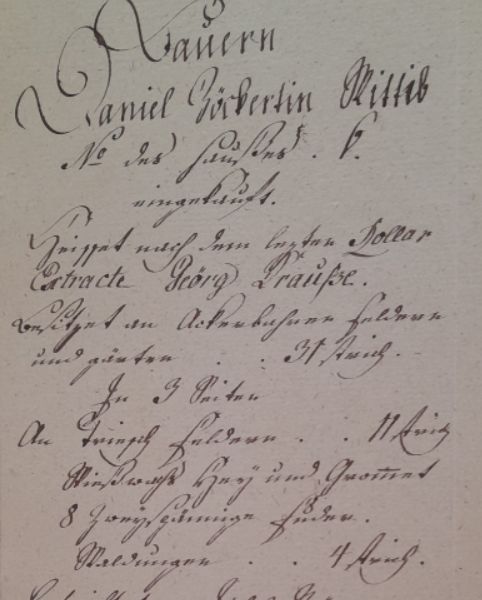 Bauern
Daniel Zöckertin Wittib
No des Haußes. 6.
eingekauft.
Heisset nach dem lezten Rollar
Extracte Geörg Krauße.
Besitzet an Ackerbahren Feldern
und gärten . . 31 strich.
In 3 Seiten
An Triesch Feldern . . 11 strich
Wießwachs Hey und Grom̄et
8 Zweyspänige Fuder.
Waldungen . . 4 strich.